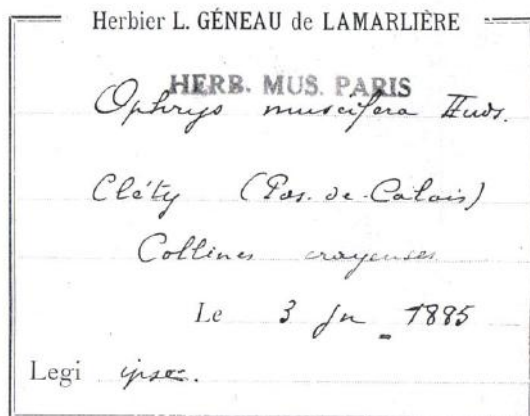 Herbier L. GÉNEAU de LAMARLIÈRE
HERB. MUS. PARIS
Ophrys muscifera Huds.
Cléty (Pas-de-Calais)
Collines crayeuses
Le 3 Jn 1885
Legi ipse.